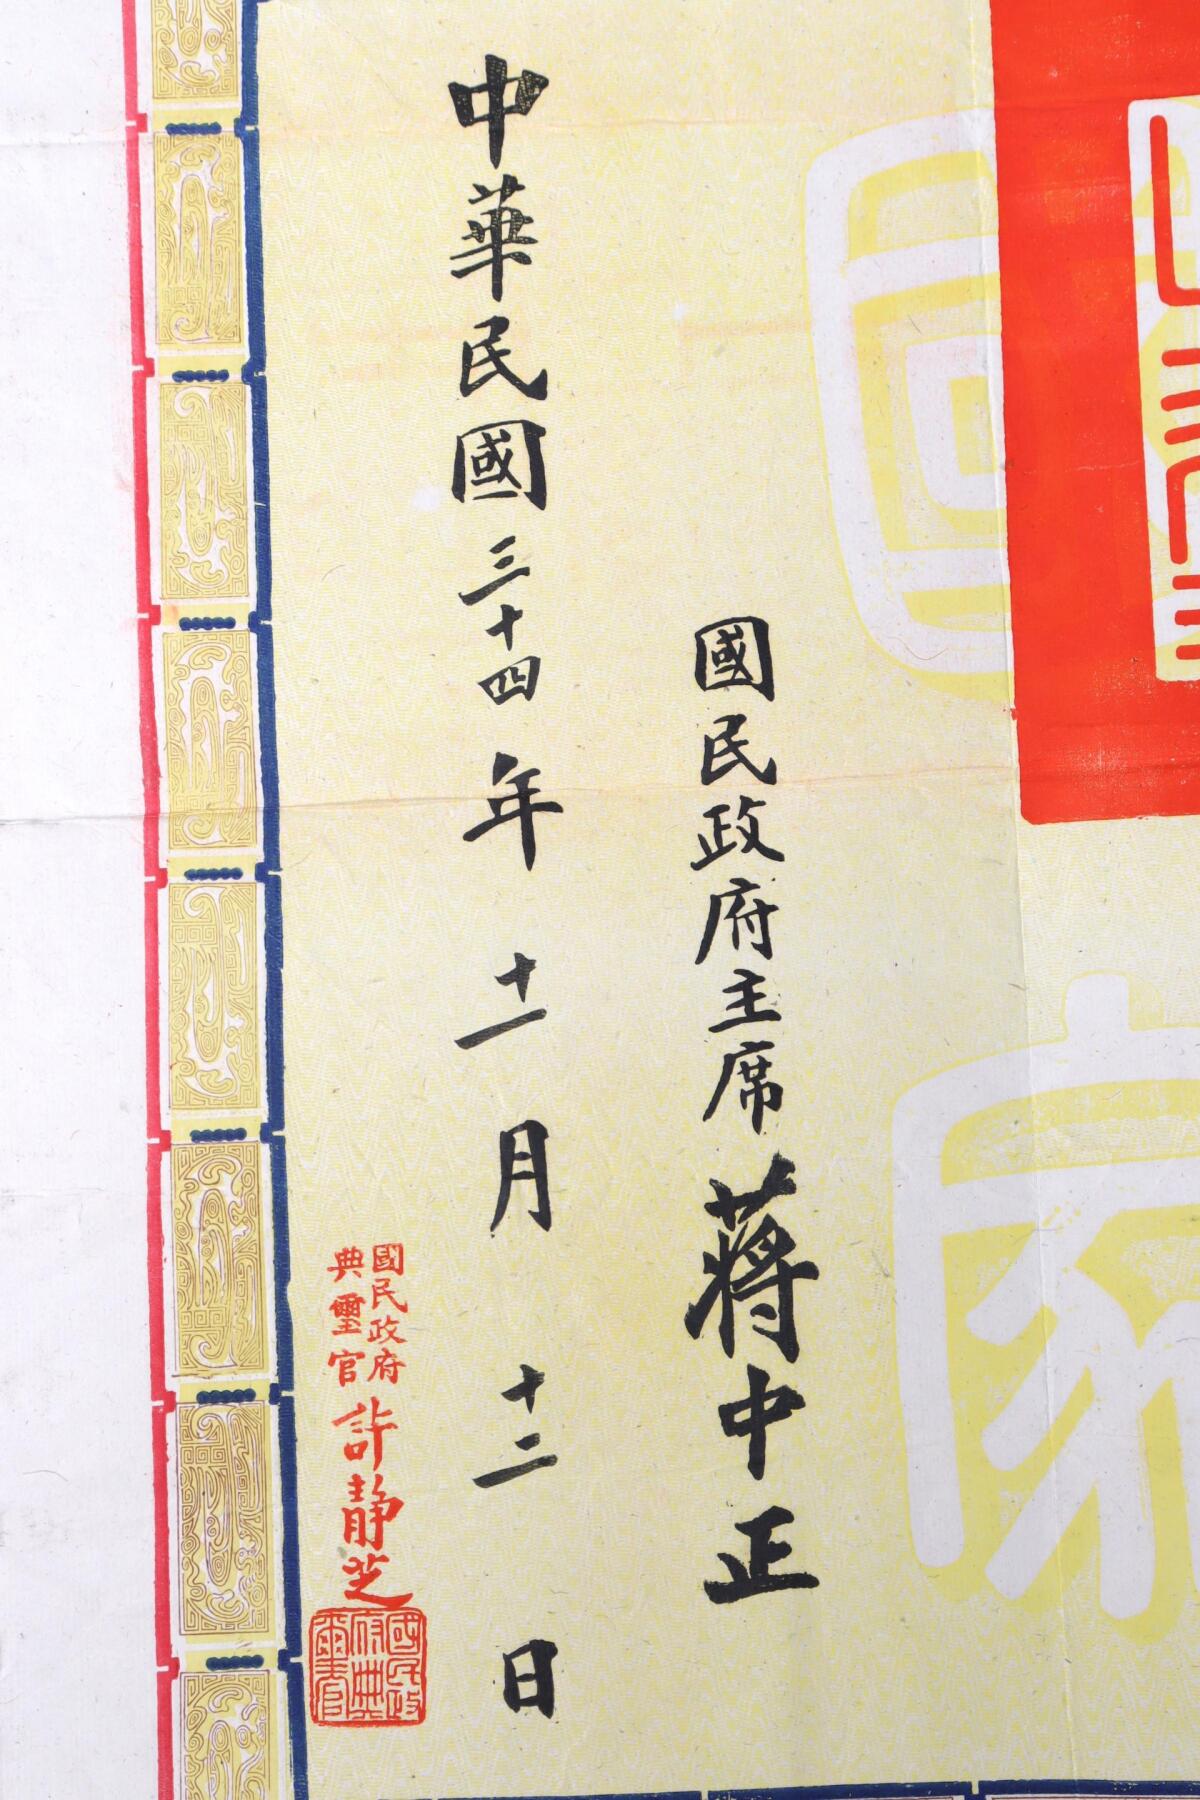 國民政府主席蔣中正
中華民國三十四年十一月十二日
國民政府
典璽官許靜芝
國民政
府典
璽官
國家